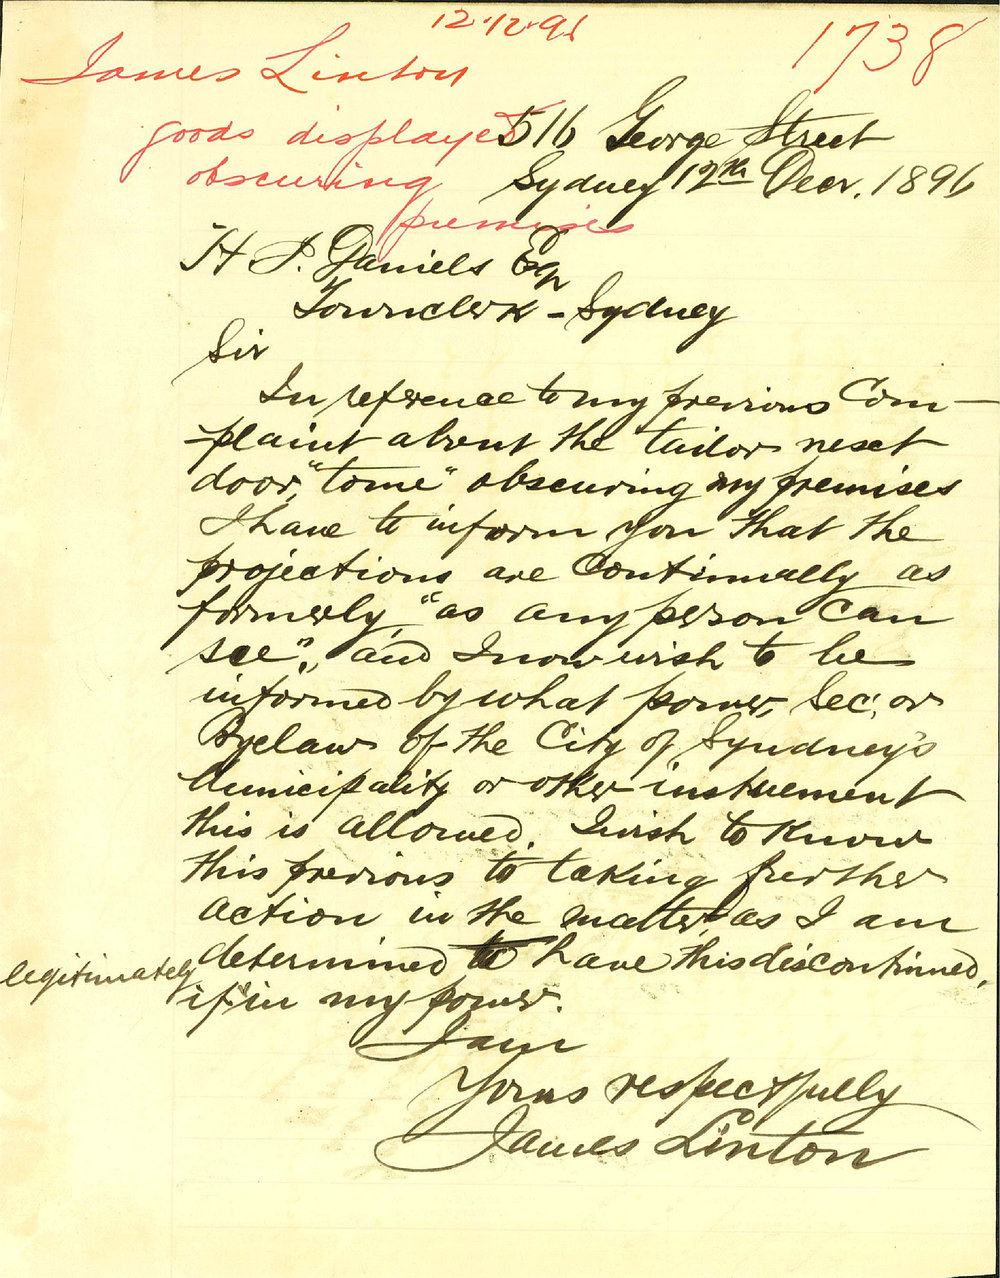 12.12.96
1738
James Linton
goods displayed
obscuring
premises
516 George Street
Sydney 12th Decr. 1896
H P. Daniels Esq
Townclerk - Sydney
Sir
In reference to my previous Com-
-plaint about the tailor next
door, "tome" obscuring my premises
I have to inform you that the
projections are Continually as
formerly, "as any person can
see", and I now wish to be
informed by what power, Sec, or
Byelaw of the City of Syndney's
Municipality or other instuement
this is allowed. I wish to know
this previous to taking further
action in the matter, as I am
determined to have this discontinued,
legitimately
if "in my power.
I am
Yours respectfully
James Linton